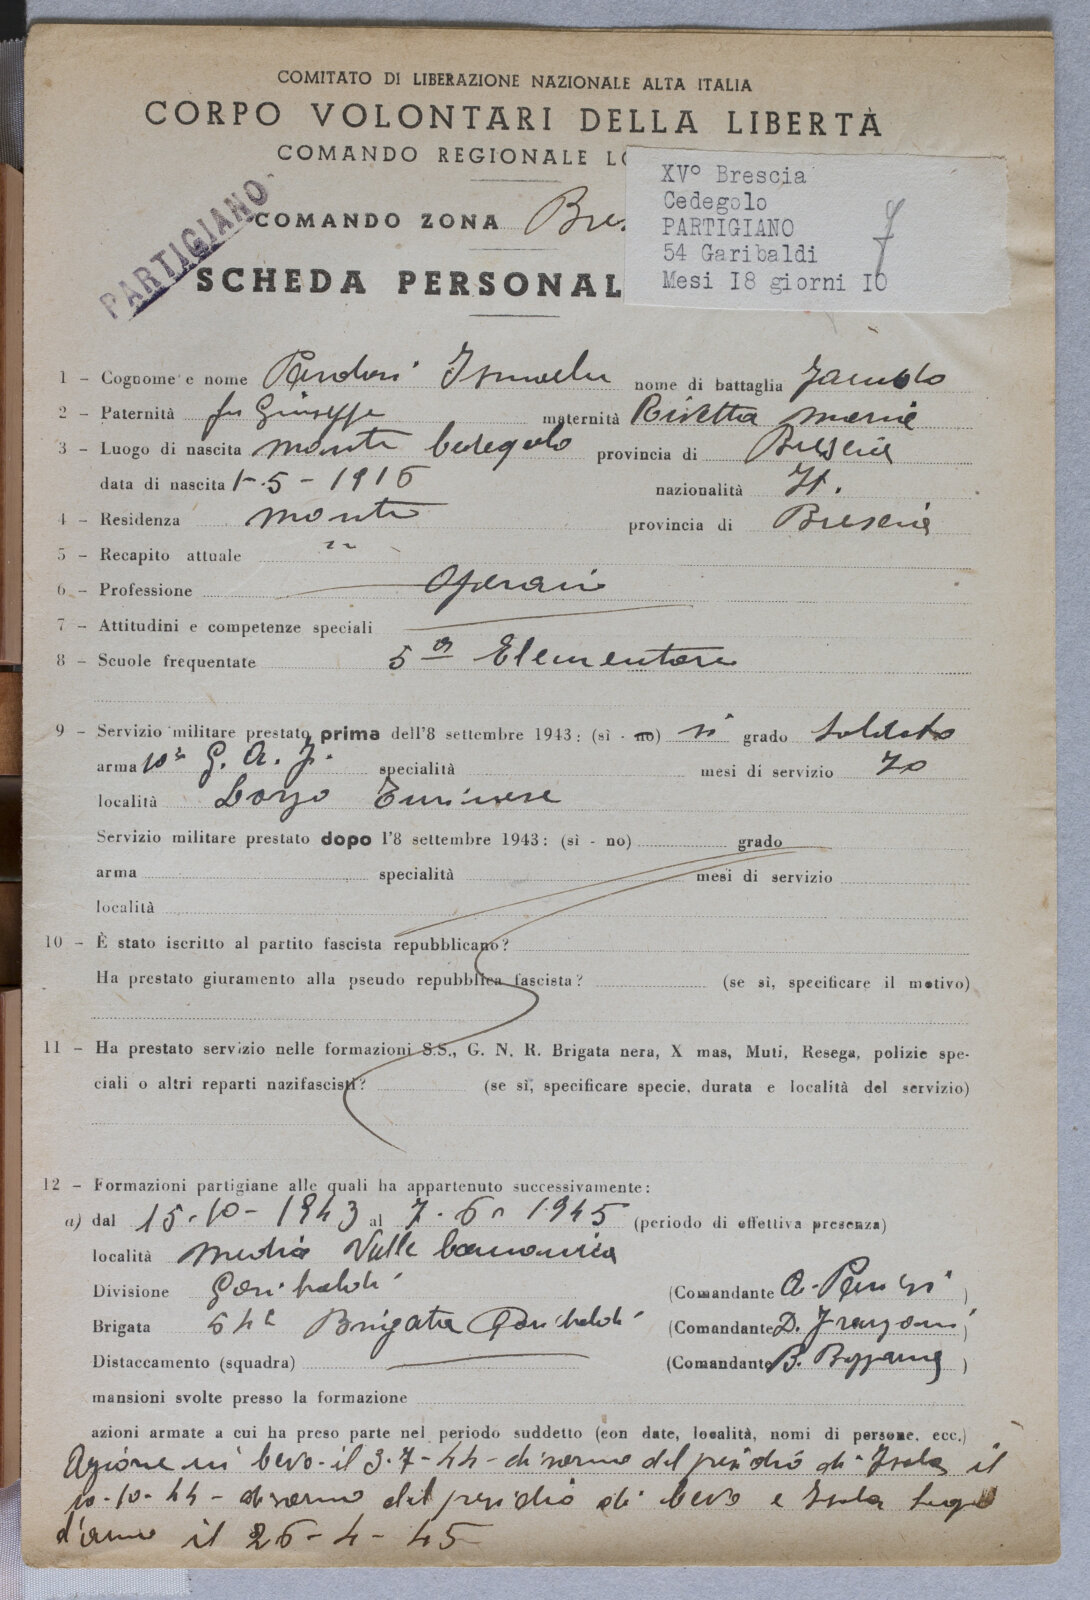 COMITATO DI LIBERAZIONE NAZIONALE ALTA ITALIA
CORPO VOLONTARI DELLA LIBERTÀ
COMANDO REGIONALE LO
XV° Brescia
Cedegolo
PARTIGIANO
54 Garibaldi
Mesi I8 giorni IO
7
PARTIGIANO
COMANDO ZONA Bre
SCHEDA PERSONAL
1 - Cognome e nome nome di battaglia
2 - Paternità fu Giuseppe maternità Maria
3 - Luogo di nascita Monte Cedegolo provincia di Brescia
data di nascita 1-5-1916 nazionalità It.
4 - Residenza Monte provincia di Brescia
5 - Recapito attuale "
6 - Professione Operaio
7 - Attitudini e competenze speciali
8 - Scuole frequentate 5a Elementare
9 - Servizio militare prestato prima dell'8 settembre 1943: (sì - no) si grado Soldato
arma G. A. F. specialità mesi di servizio 70
località Borgo
Servizio militare prestato dopo l'8 settembre 1943: (sì - no) grado
arma specialità mesi di servizio
località
10 - È stato iscritto al partito fascista repubblicano?
Ha prestato giuramento alla pseudo repubblica fascista? (se sì, specificare il motivo)
11 - Ha prestato servizio nelle formazioni S.S., G. N. R. Brigata nera, X mas, Muti, Resega, polizie spe-
ciali o altri reparti nazifascisti? (se sì, specificare specie, durata e località del servizio)
12 - Formazioni partigiane alle quali ha appartenuto successivamente:
a) dal 15-10-1943 al 7-6-1945 (periodo di effettiva presenza)
località Media Valle Camonica
Divisione Garibaldi (Comandante )
Brigata 54a Brigata Garibaldi (Comandante D. Franzoni)
Distaccamento (squadra) (Comandante B. )
mansioni svolte presso la formazione
azioni armate a cui ha preso parte nel periodo suddetto (con date, località, nomi di persone, ecc.)
Azione in Cevo il 3-7-44 - disarmo del presidio di Isola il
10-10-44 - disarmo del presidio di Cevo e Isola
d'arno il 26-4-45